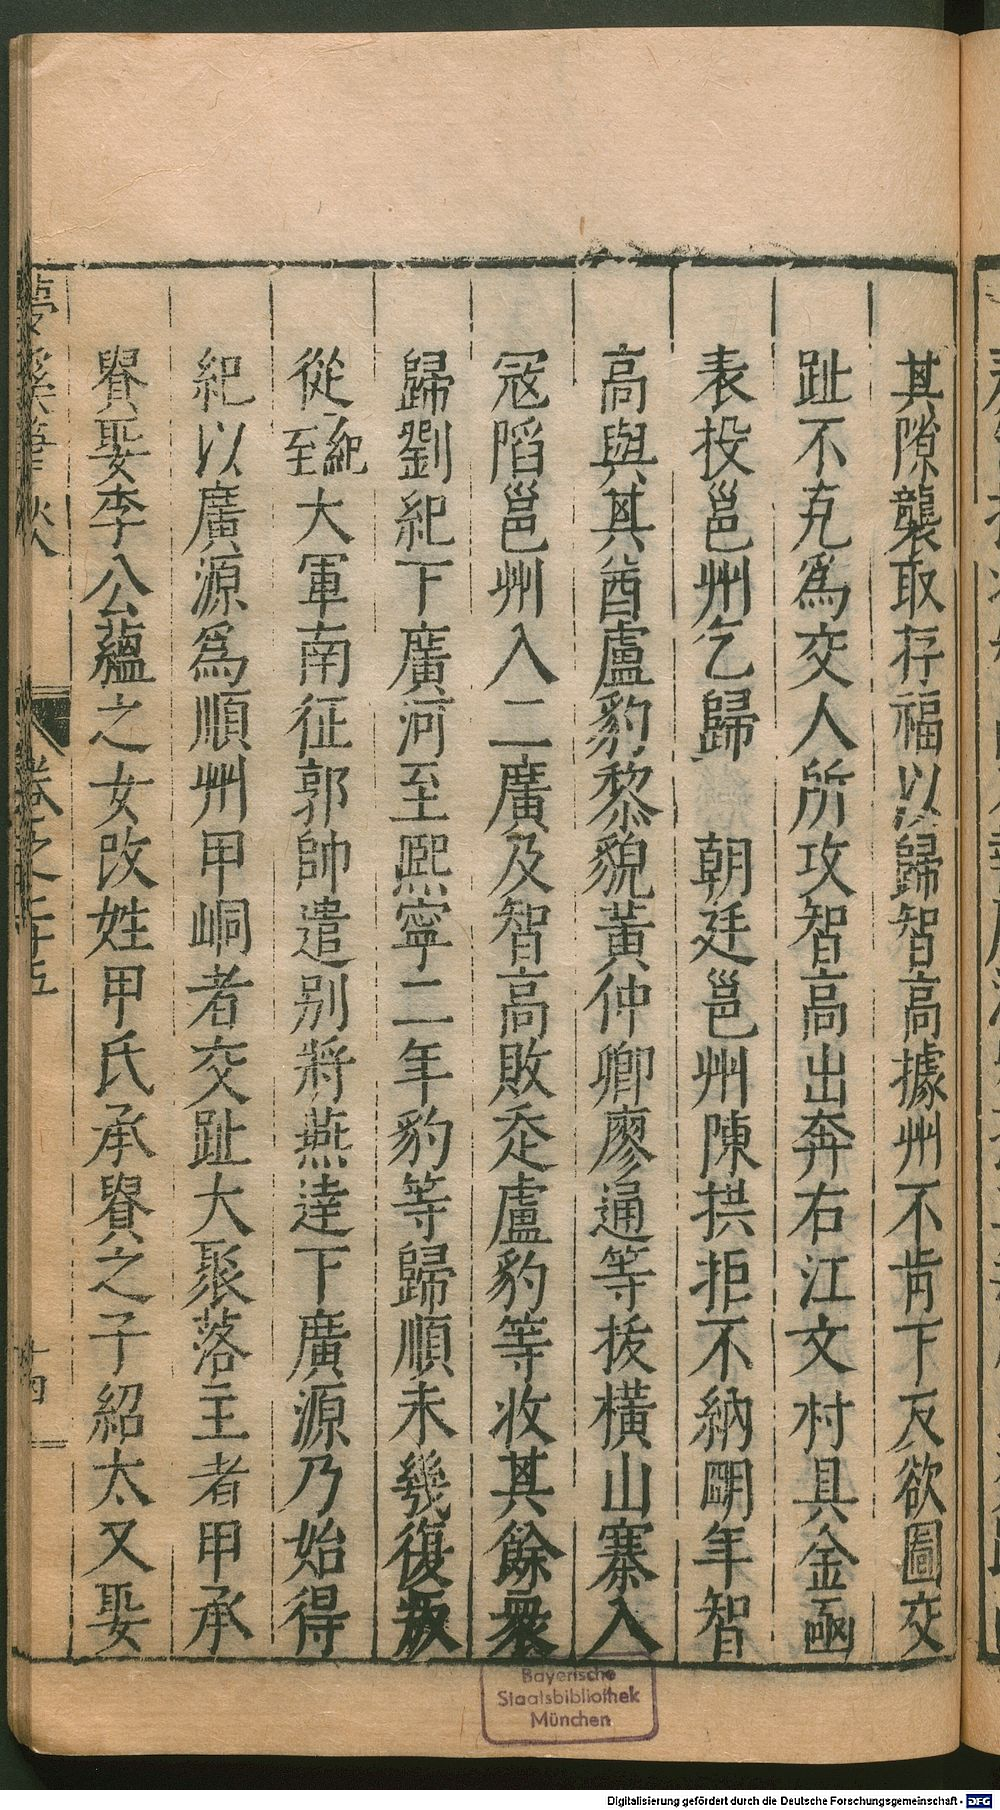 其隙襲取存福以歸智高據州不肯下反欲圖交
趾不克爲交人所攻智高出奔右江文村具金函
表投邕州乞歸　朝廷邕州陳拱拒不納明年智
高與其酋盧豹黎貌黃仲卿廖通等拔橫山寨入
冦陷邕州入二廣及智高敗走盧豹等收其餘衆
歸劉紀下廣河至熙寧二年豹等歸順未幾復叛
從紀至大軍南征郭帥遣别將燕達下廣源乃始得
紀以廣源爲順州甲峒者交趾大聚落主者甲承
貴娶李公蘊之女改姓甲氏承貴之子紹太又娶
夢溪筆談　卷之二十五　十四
Bayerische
Staatsbibliothek
München
Digitalisierung gefördert durch die Deutsche Forschungsgemeinschaft - DFG